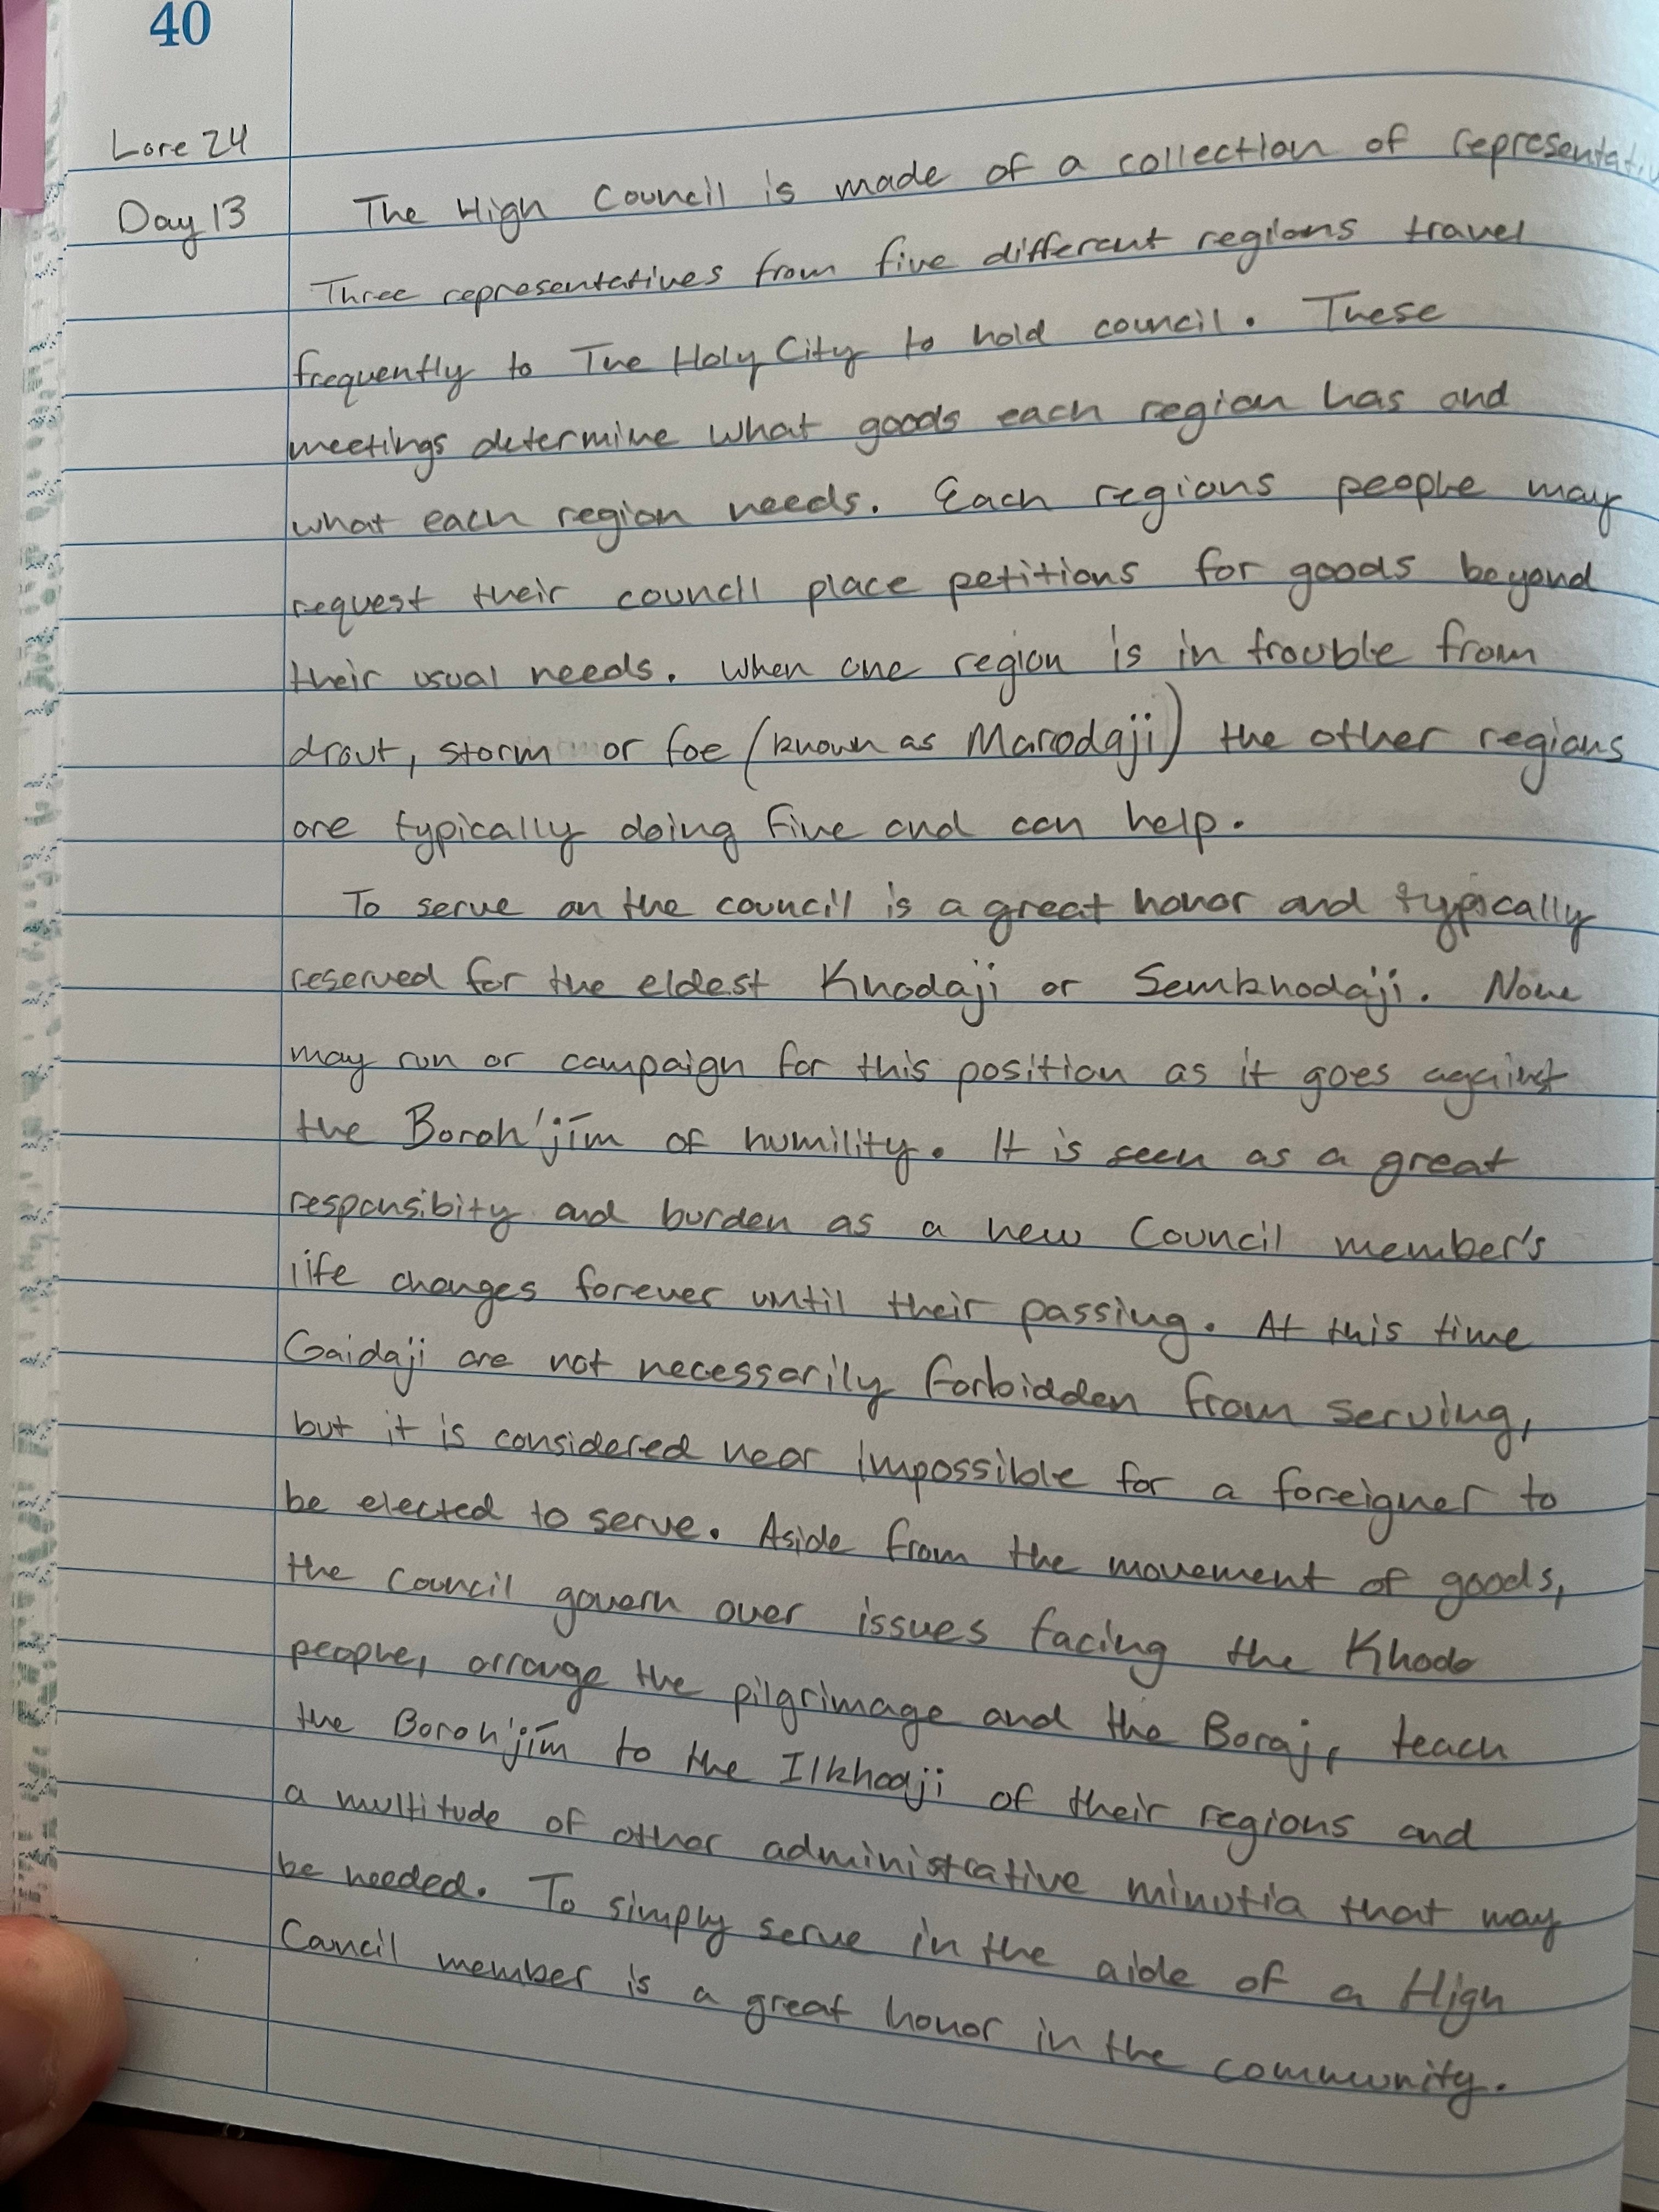 40
Lore 24
Day 13
The High Council is made of a collection of
Three representatives from five different regions travel
frequently to The Holy City to hold council. These
meetings determine what goods each region has and
what each region needs. Each regions people may
request their council place petitions for goods beyond
their usual needs. When one region is in trouble from
drout, storm or foe (known as Marodaji) the other regions
are typically doing fine and can help.
To serve on the council is a great honor and typically
reserved for the eldest Khodaji or Semkhodaji. None
may run or campaign for this position as it goes against
the Boroh'jīm of humility. It is seen as a great
responsibity and burden as a new Council member's
life changes forever until their passing. At this time
Gaidaji are not necessarily forbidden from serving,
but it is considered near impossible for a foreigner to
be elected to serve. Aside from the movement of goods,
the Council govern over issues facing the Khodo
people, arrange the pilgrimage and the Boraj, teach
the Boroh'jīm to the Ilkhodji of their regions and
a multitude of other administrative minutia that may
be needed. To simply serve in the aide of a High
Council member is a great honor in the community.